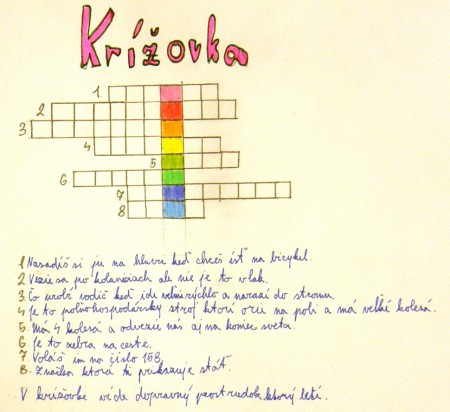 Krížovka
1
2
3
4
5
6
7
8
1 Nasadíš si ju na hlavu keď chceš ísť na bicykel.
2 Vozí sa po kolaniciach ale nie je to vlak.
3 Čo urobí vodič keď ide veľmi rýchlo a narazí do stromu
4 Je to poľnohospodársky stroj ktorí orie na poli a má veľké kolesá.
5. Má 4 kolesá a odvezie nás aj na koniec sveta.
6 Je to zebra na ceste.
7. Voláš im na číslo 158.
8. Značka ktorá ti prikazuje stáť.
V krížovke vide dopravný prostriedok, ktorý letí.